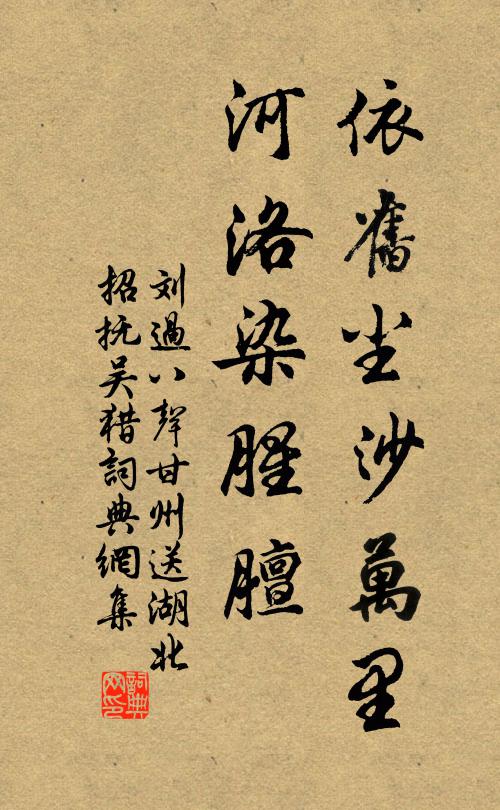 依舊尘沙萬里
河洛染腥膻
刘過八聲甘州送湖北
招抚吴猎詞典網集
詞典
网印